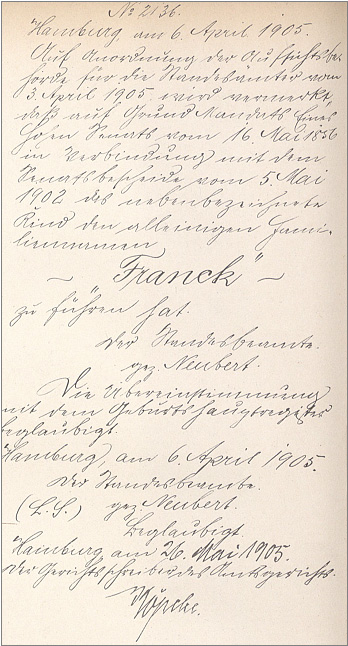 No 2136.
Hamburg am 6. April 1905.
Auf Anordnung der Aufsichtsbe-
hörde für die Standesämter vom
3. April 1905 wird vermerkt,
daß auf Grund Mandats Eines
Hohen Senats vom 16. Mai 1836
in Verbindung mit dem
Senatsbescheide vom 5. Mai
1902 das nebenbezeichnete
Kind den alleinigen Fami-
liennamen
~ "Franck" ~
zu führen hat.
Der Standesbeamte.
gez. Neubert.
Die Übereinstimmung
mit dem Geburtshauptregister
beglaubigt.
Hamburg, am 6. April 1905.
Der Standesbeamte.
(L.S.) gez. Neubert.
Beglaubigt.
Hamburg, am 26. Mai 1905.
Der Gerichtsschreiber des Amtsgerichts.